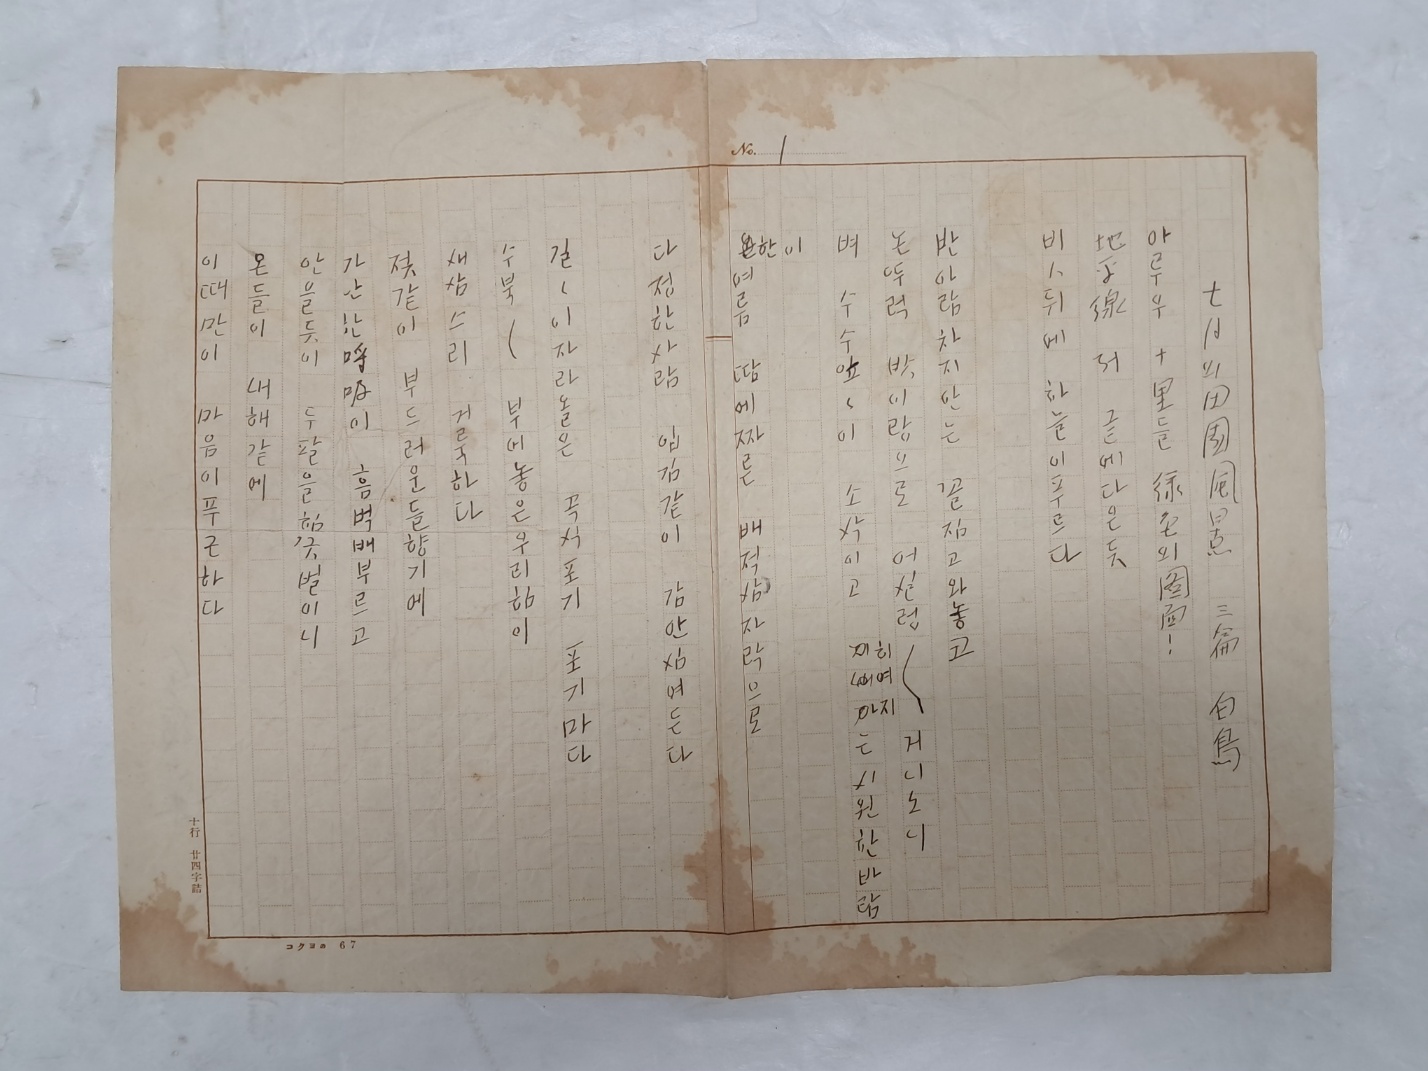 No. 1
七月의田園風景 三篇 白鳥
아루우 十里들 綠色의圖面!
地平線저 끝에다은듯
비ㅅ뒤에 하늘이푸르다
반아람차지안는 꼴짐고와놓고
논두럭 밖이랍으로 어칠렁 거니노니
벼 수수잎〃이 소삭이고
는 시원한바람
한이
여름 땀에짜른 배적삼자락으로
다정한사람 입김같이 감안심여든다
길〃이자라올은 곡식포기 포기마다
수북〱 부여놓은우리힘이
새삼스리 거룩하다
젖같이 부드러운들향기에
가난한呼吸이 흠벅배부르고
안을듯이 두팔을힘끗벌이니
온들이 내해같에
이때만이 마음이푸근하다
十行 廿四字詰
コクヨの 67